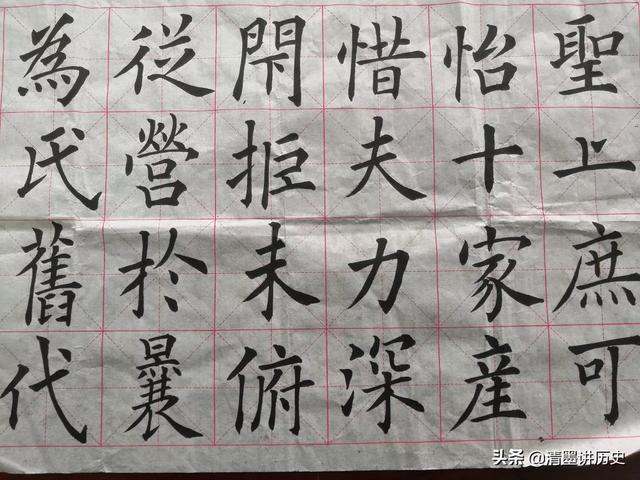 聖上庶可
怡十家産
惜夫力深
閇拒未俯
從營於曩
為氏舊代
头条 @清墨讲历史